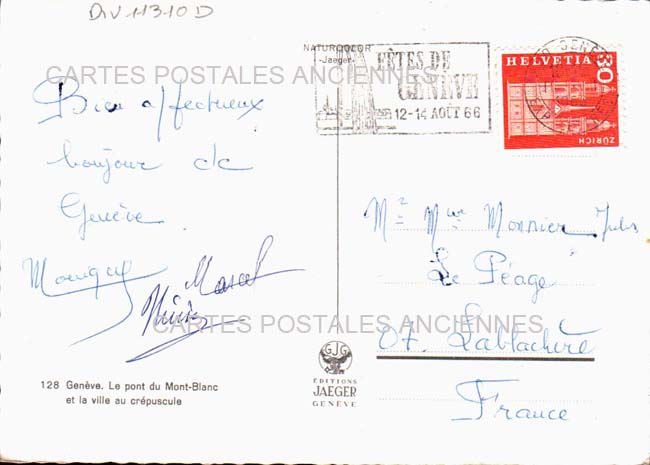 DIV 11310 D
NATURCOLOR
-Jaeger-
FÊTES DE
GENÈVE
12-14 AOÛT 66
GENÈVE
HELVETIA
30
ZÜRICH
CARTES POSTALES ANCIENNES
Bien affectueux
bonjour de
Genève
Marcel
Mr Mme Monnier Jules
Le Péage
07. Lablachère
France
CARTES POSTALES ANCIENNES
GJG
ÉDITIONS
JAEGER
GENÈVE
128 Genève. Le pont du Mont-Blanc
et la ville au crépuscule